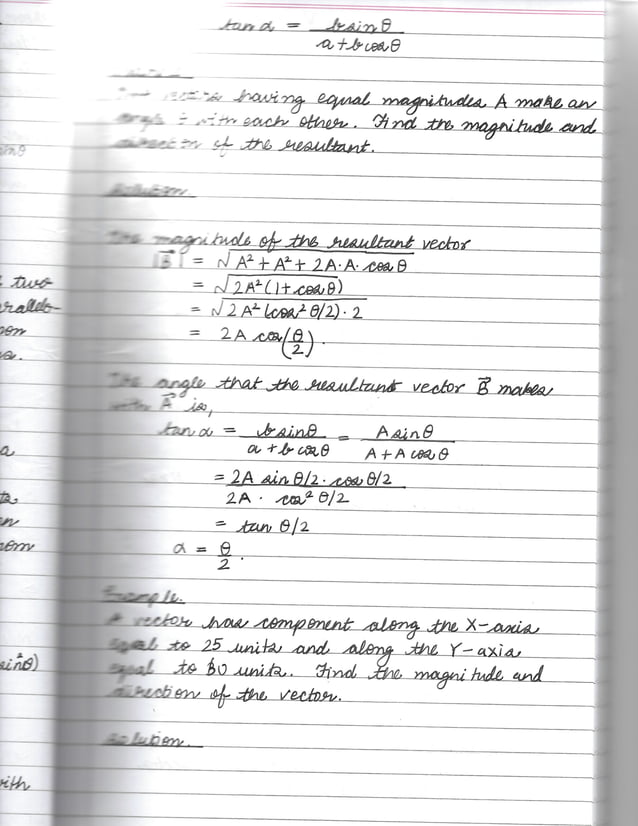 tan α = b sin θ / a + b cos θ
having equal magnitudes A make an
angle θ with each other. Find the magnitude and
direction of the resultant.
Solution
The magnitude of the resultant vector
|B⃗| = √A² + A² + 2A·A·cos θ
= √2A²(1 + cos θ)
= √2A²(cos² θ/2)·2
= 2A cos(θ/2).
The angle that the resultant vector B⃗ makes
with A⃗ is,
tan α = b sin θ / a + b cos θ = A sin θ / A + A cos θ
= 2A sin θ/2 · cos θ/2 / 2A · cos² θ/2
= tan θ/2
α = θ/2.
Example.
A vector has component along the X-axis
equal to 25 units and along the Y-axis
equal to 60 units. Find the magnitude and
direction of the vector.
Solution.
two
a
with